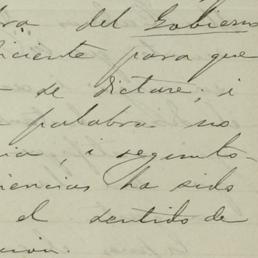 bra del Gobierno
ficiente para que
- se dictare; i
palabra no
ia, i segunto-
iencias ha sido
el sentido de
ción.